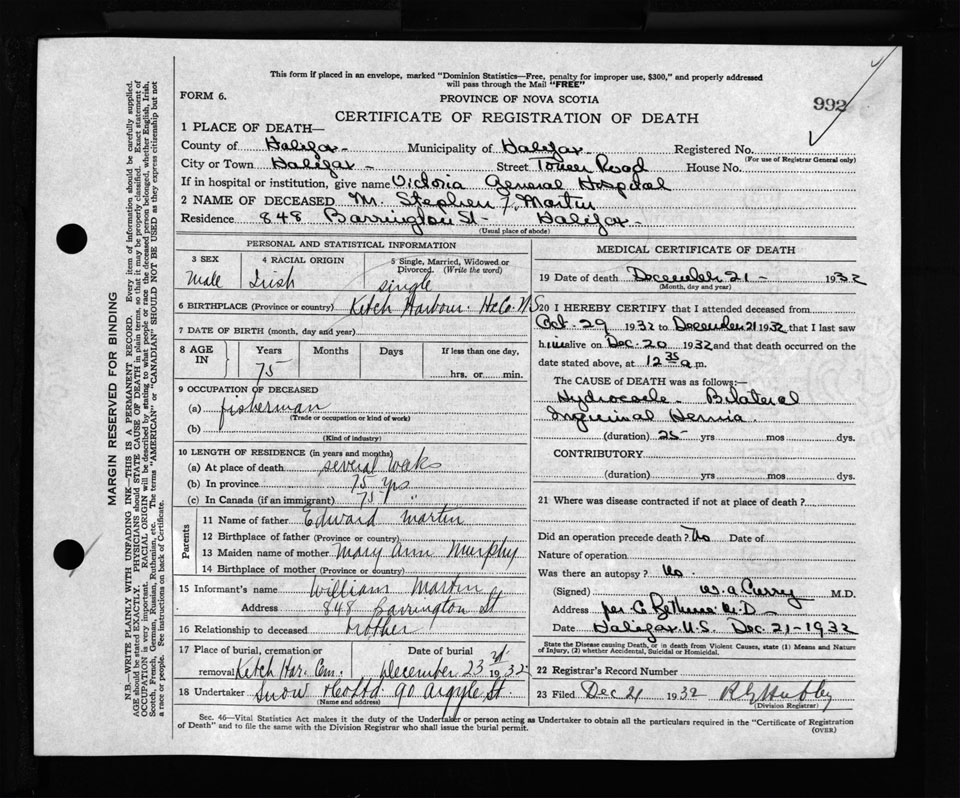 This form if placed in an envelope, marked "Dominion Statistics—Free, penalty for improper use, $300," and properly addressed
will pass through the Mail "FREE"
FORM 6.
PROVINCE OF NOVA SCOTIA
992
CERTIFICATE OF REGISTRATION OF DEATH
1 PLACE OF DEATH—
County of Halifax Municipality of Halifax Registered No.
(For use of Registrar General only)
City or Town Halifax Street Tower Road House No.
If in hospital or institution, give name Victoria General Hospital
2 NAME OF DECEASED M. Stephen F. Martin
Residence 848 Barrington St - Halifax -
(Usual place of abode)
PERSONAL AND STATISTICAL INFORMATION
3 SEX 4 RACIAL ORIGIN 5 Single, Married, Widowed or
Divorced. (Write the word)
Male Irish single
6 BIRTHPLACE (Province or country) Ketch Harbour. Hx Co. N.S
7 DATE OF BIRTH (month, day and year)
8 AGE IN Years Months Days If less than one day,
75 hrs. or min.
9 OCCUPATION OF DECEASED
(a) fisherman
(Trade or occupation or kind of work)
(b)
(Kind of industry)
10 LENGTH OF RESIDENCE (in years and months)
(a) At place of death several weeks
(b) In province 75 yrs
(c) In Canada (if an immigrant) 75 "
Parents
11 Name of father Edward Martin
12 Birthplace of father (Province or country)
13 Maiden name of mother Mary Ann Murphy
14 Birthplace of mother (Province or country)
15 Informant's name William Martin
Address 848 Barrington St
16 Relationship to deceased brother
17 Place of burial, cremation or Date of burial
removal Ketch Har. Cem. December 23rd 1932
18 Undertaker Snow & Co Ltd 90 Argyle St.
(Name and address)
MEDICAL CERTIFICATE OF DEATH
19 Date of death December 21 - 1932
(Month, day and year)
20 I HEREBY CERTIFY that I attended deceased from
Oct. 29 1932 to December 21 1932 that I last saw
him alive on Dec. 20 1932 and that death occurred on the
date stated above, at 12 35 a.m.
The CAUSE OF DEATH was as follows:—
Hydrocoele - Bilateral
Inguinal Hernia.
(duration) 25 yrs mos dys.
CONTRIBUTORY
(duration) yrs mos dys.
21 Where was disease contracted if not at place of death?
Did an operation precede death? No Date of
Nature of operation
Was there an autopsy? No
(Signed) W. A. Curry M.D.
Address per C. M.D
Date Halifax N.S. Dec. 21-1932
State the Disease causing Death, or in death from Violent Causes, state (1) Means and Nature
of Injury, (2) whether Accidental, Suicidal or Homicidal.
22 Registrar's Record Number
23 Filed Dec 21 1932
(Division Registrar)
Sec. 46—Vital Statistics Act makes it the duty of the Undertaker or person acting as Undertaker to obtain all the particulars required in the "Certificate of Registration
of Death" and to file the same with the Division Registrar who shall issue the burial permit.
(OVER)
MARGIN RESERVED FOR BINDING
N.B.—WRITE PLAINLY WITH UNFADING INK—THIS IS A PERMANENT RECORD. Every item of information should be carefully supplied.
AGE should be stated EXACTLY. PHYSICIANS should STATE CAUSE OF DEATH in plain terms, so that it may be properly classified. Exact statement of
OCCUPATION is very important. RACIAL ORIGIN will be described by stating to what people or race the deceased person belonged, whether English, Irish,
Scotch, French, German, Russian, Ruthenian, etc. The terms "AMERICAN" or "CANADIAN" SHOULD NOT BE USED as they express citizenship but not
a race or people. See instructions on back of Certificate.